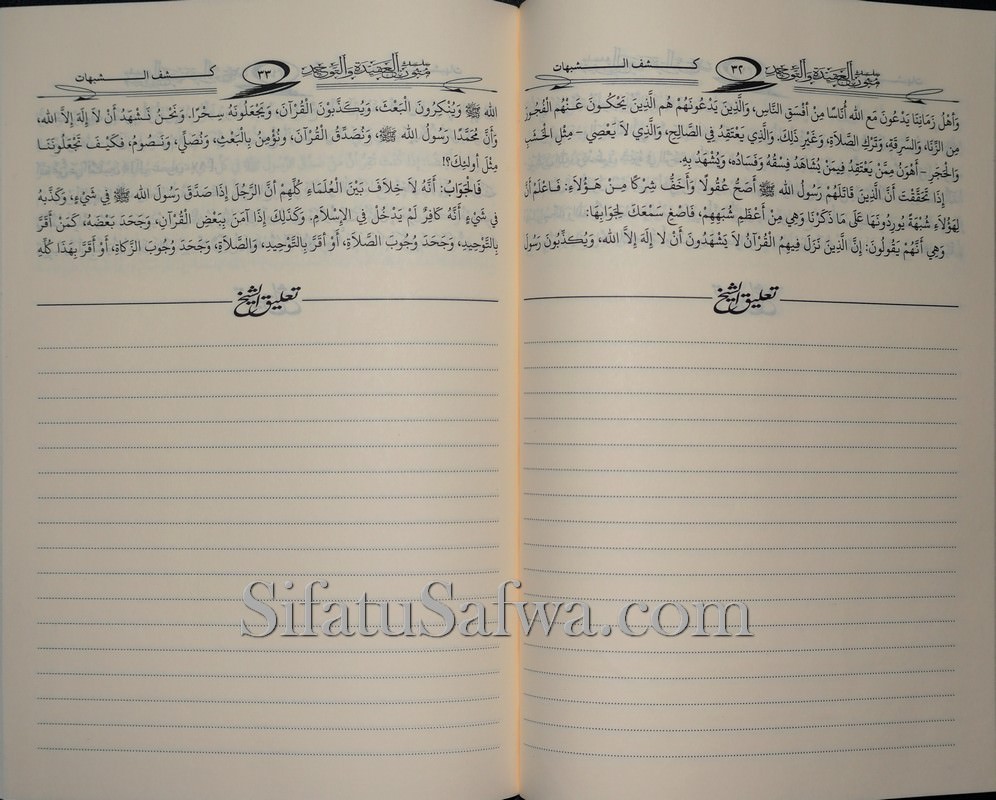 سلسلة متون في العقيدة والتوحيد ٣٢ كشف الشبهات
وَأَهْلُ زَمَانِنَا يَدْعُونَ مَع الله أُنَاسًا مِنْ أَفْسَقِ النَّاسِ، وَالَّذِينَ يَدْعُونَهُمْ هُم الَّذِينَ يَحْكُونَ عَنْهُم الْفُجُورَ
مِن الزِّنَا، وَالسَّرِقَةِ، وَتَرْكِ الصَّلَاةِ، وَغَيْرِ ذَلِكَ. وَالَّذِي يَعْتَقِدُ فِي الصَّالِحِ، وَالَّذِي لَا يَعْصِي – مِثْلِ الْخَشَبِ
وَالْحَجَرِ – أَهْوَنُ مِمَّنْ يَعْتَقِدُ فِيمَنْ يُشَاهَدُ فِسْقُهُ وَفَسَادُه، وَيُشْهَدُ بِهِ.
إِذَا تَحَقَّقْتَ أَنَّ الَّذِينَ قَاتَلَهُمْ رَسُولُ الله ﷺ أَصَحُّ عُقُولًا وَأَخَفُّ شِرْكًا مِنْ هَؤُلَاءِ: فَاعْلَمْ أَنَّ
لِهَؤُلَاءِ شُبْهَةً يُورِدُونَهَا عَلَى مَا ذَكَرْنَا وَهِيَ مِنْ أَعْظَمِ شُبَهِهِمْ، فَاصْغِ سَمْعَكَ لِجَوَابِهَا:
وَهِي أَنَّهُمْ يَقُولُونَ: إِنَّ الَّذِينَ نَزَلَ فِيهِمُ الْقُرْآنُ لَا يَشْهَدُونَ أَنْ لَا إِلَهَ إِلاَّ الله، وَيُكَذِّبُونَ رَسُولَ
تعليق الشيخ
سلسلة متون في العقيدة والتوحيد ٣٣ كشف الشبهات
الله ﷺ وَيُنْكِرُونَ الْبَعْثَ، وَيُكَذِّبُونَ الْقُرْآنَ، وَيَجْعَلُونَهُ سِحْرًا. وَنَحْنُ نَشْهَدُ أَنْ لَا إِلَهَ إِلاَّ الله،
وَأَنَّ مُحَمَّدًا رَسُولُ الله ﷺ، وَنُصَدِّقُ الْقُرْآنَ، وَنُؤْمِنُ بِالْبَعْثِ، وَنُصَلِّي، وَنَصُومُ، فَكَيْفَ تَجْعَلُونَنَا
مِثْلَ أُولَئِكَ؟!
فَالْجَوَابُ: أَنَّهُ لَا خِلَافَ بَيْنَ الْعُلَمَاءِ كُلِّهِمْ أَنَّ الرَّجُلَ إِذَا صَدَّقَ رَسُولَ الله ﷺ فِي شَيْءٍ، وَكَذَّبَهُ
فِي شَيْءٍ أَنَّهُ كَافِرٌ لَمْ يَدْخُلْ فِي الْإِسْلَامِ. وَكَذَلِكَ إِذَا آمَنَ بِبَعْضِ الْقُرْآنِ، وَجَحَدَ بَعْضَه، كَمَنْ أَقَرَّ
بِالتَّوْحِيدِ، وَجَحَدَ وُجُوبَ الصَّلَاةِ، أَوْ أَقَرَّ بِالتَّوْحِيدِ، وَالصَّلَاةِ، وَجَحَدَ وُجُوبَ الزَّكَاةِ، أَوْ أَقَرَّ بِهَذَا كُلِّهِ
تعليق الشيخ
SifatuSafwa.com